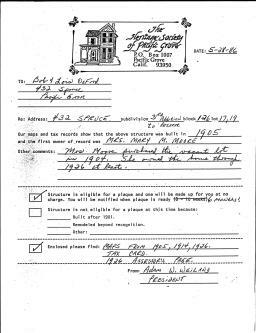 The
Heritage Society
of Pacific Grove
P.O. Box 1007
Pacific Grove
Calif. 93950
DATE: 5-28-86
TO: Bob & Lois DeFord
432 Spruce
Pacific Grove
Re: Address: 432 SPRUCE subdivision 3rd Addition block 126 lot 17, 19
Our maps and tax records show that the above structure was built in 1905
and the first owner of record was MRS. MARY M. MOORE
Other comments: Mrs. Moore purchased the vacant lot
in 1904. She owned the home through
1926 at least.
Structure is eligible for a plaque and one will be made up for you at no
charge. You will be notified when plaque is ready (8 - 10 weeks) 6 months!
Structure is not eligible for a plaque at this time because:
Built after 1901.
Remodeled beyond recognition.
Other:
Enclosed please find: MAPS FROM 1905, 1914, 1926.
TAX CARD.
1926 ASSESSORS PAGE.
From ADAM W. WEILAND
PRESIDENT